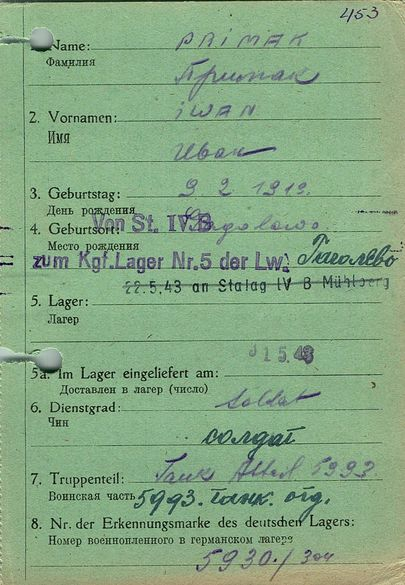 453
Name: PRIMAK
Фамилия
Примак
2. Vornamen: IWAN
Имя
Иван
3. Geburtstag: 9 2 1919.
День рождения
Von St. IV B
4. Geburtsort:
Место рождения
zum Kgf. Lager Nr. 5 der Lw. Гаголево
22.5.43 an Stalag IV B Mühlberg
5. Lager:
Лагер
5a. Im Lager eingeliefert am: 5. 43
Доставлен в лагер (число)
6. Dienstgrad: Soldat
Чин
солдат
7. Truppenteil: 5993
Воинская часть 5993. танк. отд.
8. Nr. der Erkennungsmarke des deutschen Lagers:
Номер военнопленного в германском лагере
5930/304